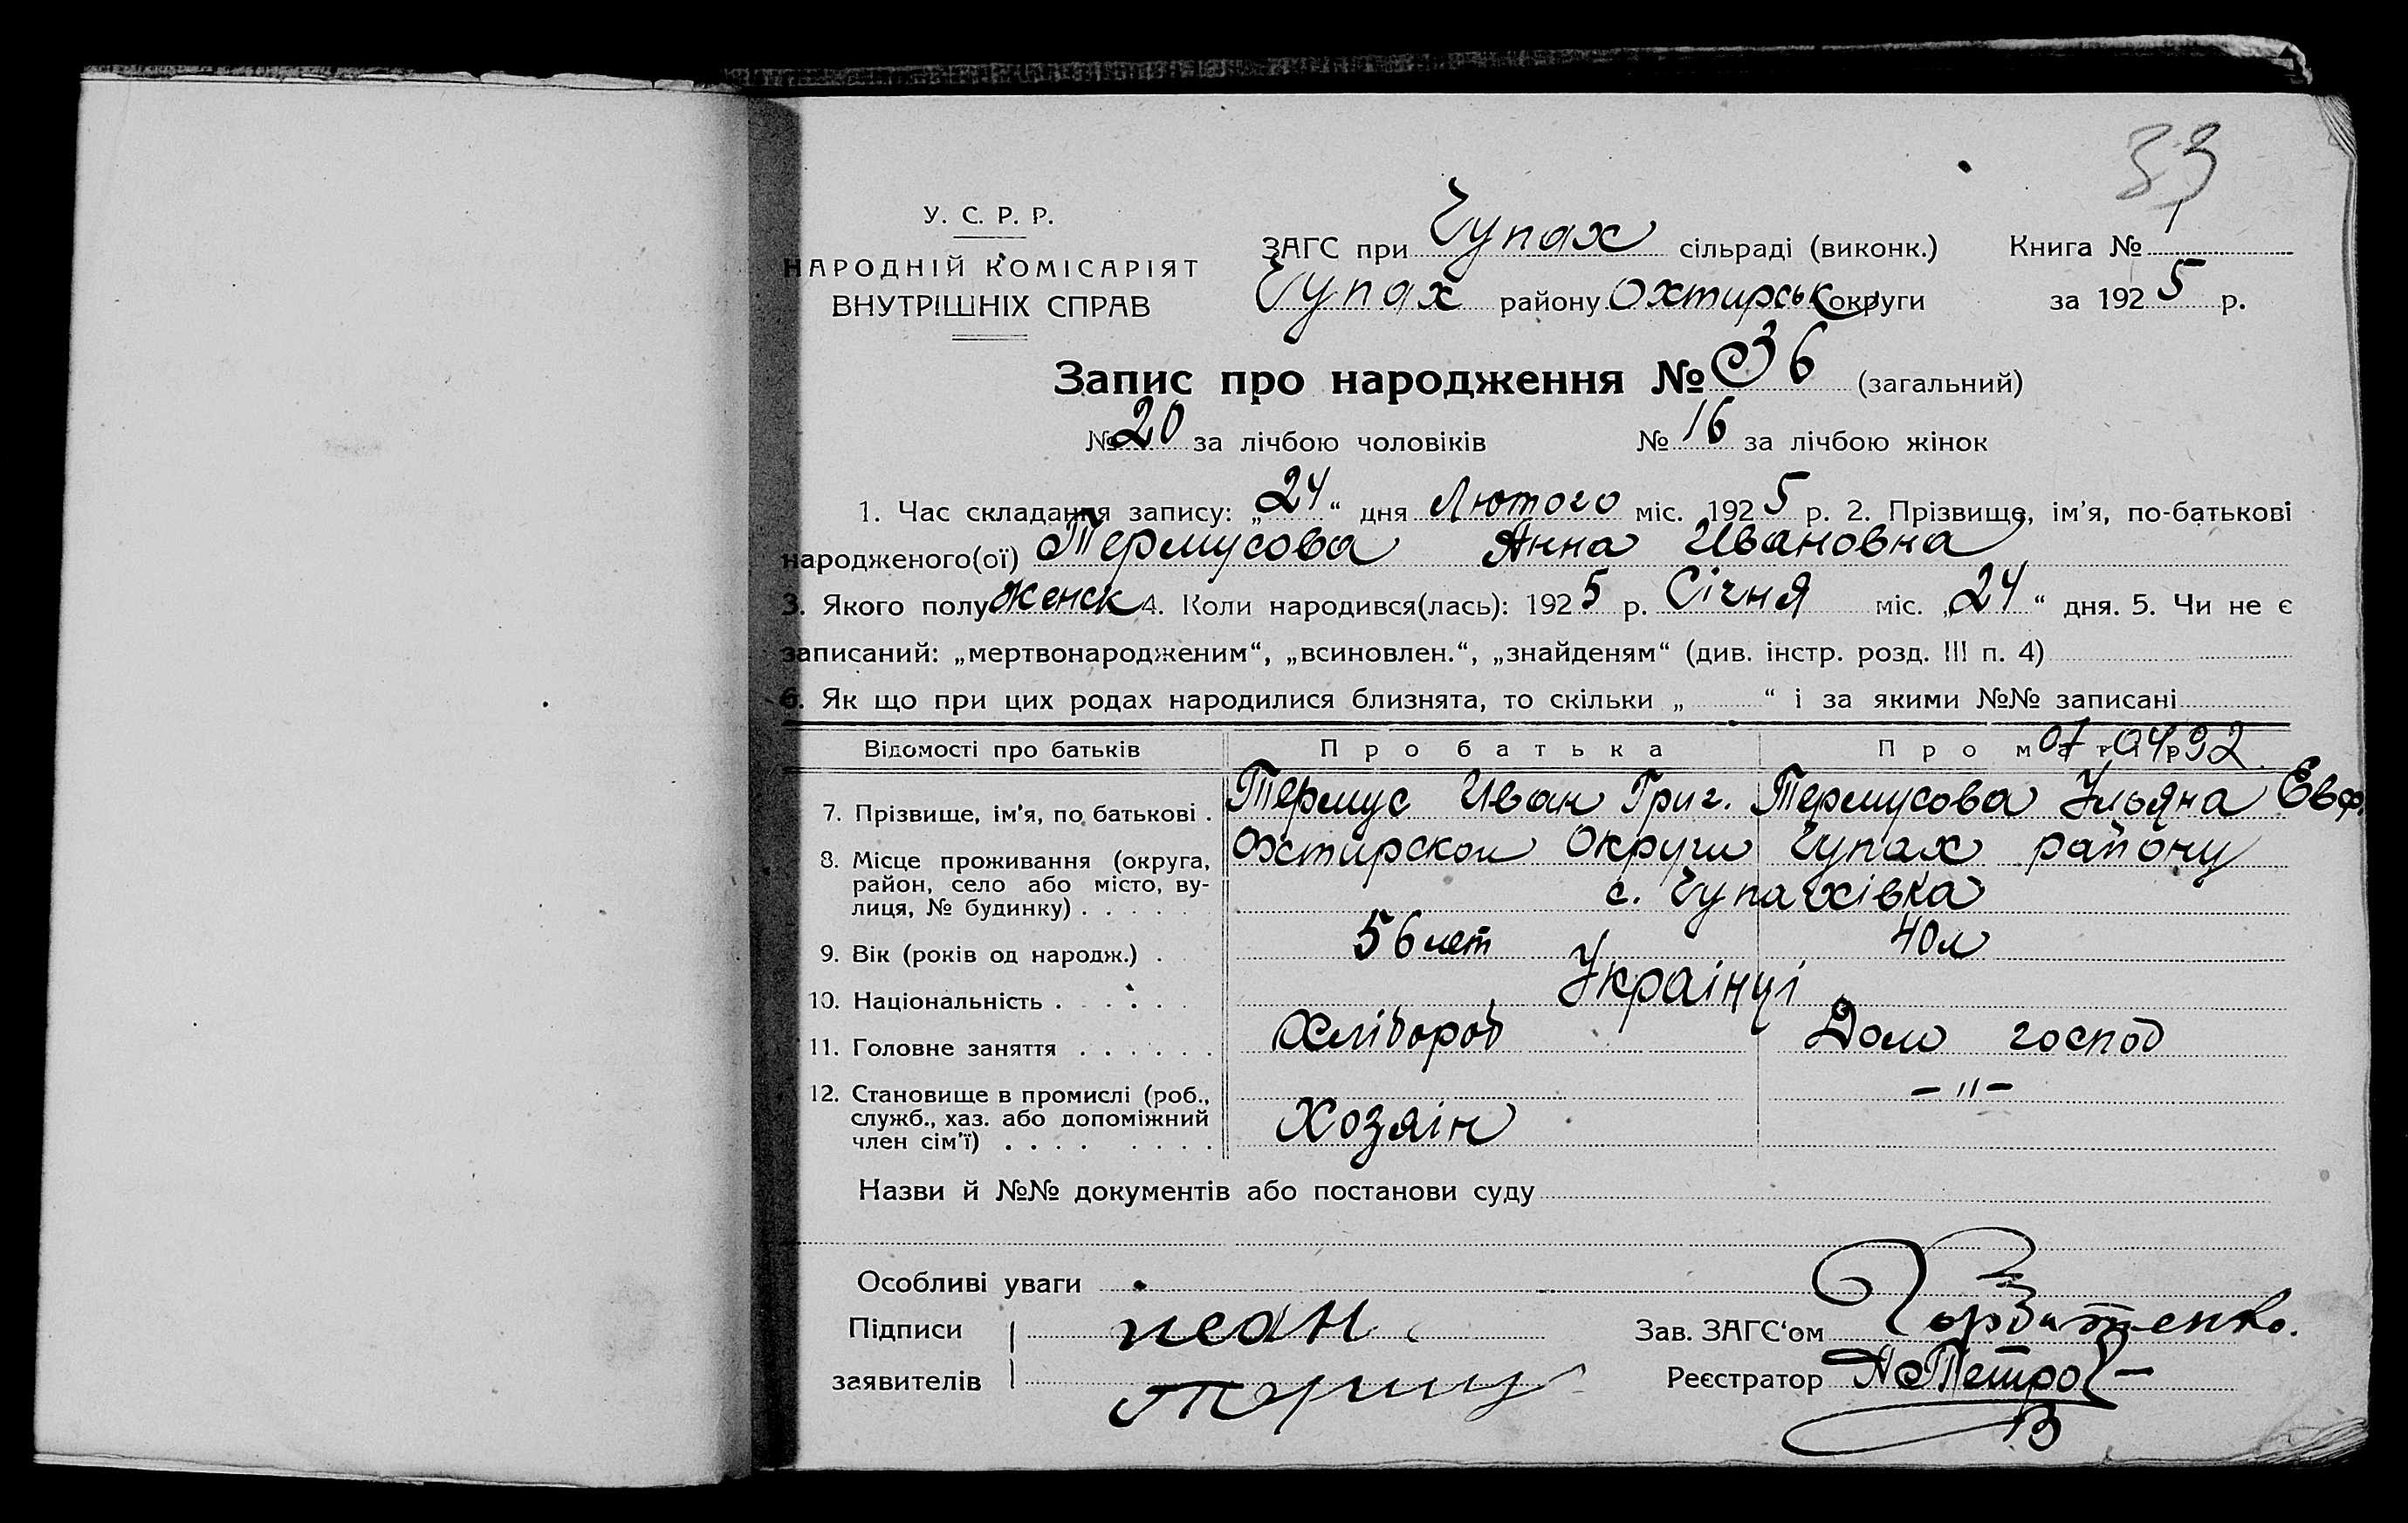 33
У. С. Р. Р.
НАРОДНІЙ КОМІСАРІЯТ
ВНУТРІШНІХ СПРАВ
ЗАГС при Чупах сільраді (виконк.) Книга № 1
Чупах району Охтирськ округи за 1925 р.
Запис про народження № 36 (загальний)
№ 20 за лічбою чоловіків № 16 за лічбою жінок
1. Час складання запису: „24“ дня Лютого міс. 1925 р. 2. Прізвище, ім’я, по-батькові
народженого(ої) Термусова Анна Ивановна
3. Якого полу женск 4. Коли народився(лась): 1925 р. Січня міс. „24“ дня. 5. Чи не є
записаний: „мертвонародженим“, „всиновлен.“, „знайденям“ (див. інстр. розд. III п. 4)
6. Як що при цих родах народилися близнята, то скільки „ “ і за якими №№ записані
Відомості про батьків Про батька Про матір 07 04 92.
7. Прізвище, ім’я, по батькові . Термус Иван Григ. Термусова Ульяна Евф.
8. Місце проживання (округа, Охтирскои Округи Чупах району
район, село або місто, ву-
лиця, № будинку) . . . . . с. Чупахівка
9. Вік (років од народж.) . 56 лет 40 л
10. Національність . . . . . Украінці
11. Головне заняття . . . . . . Хлібороб Дом господ
12. Становище в промислі (роб., – " –
служб., хаз. або допоміжний Хозяін
член сім’ї) . . . . . . . .
Назви й №№ документів або постанови суду
Особливі уваги
Підписи Зав. ЗАГС‘ом
заявителів Реєстратор